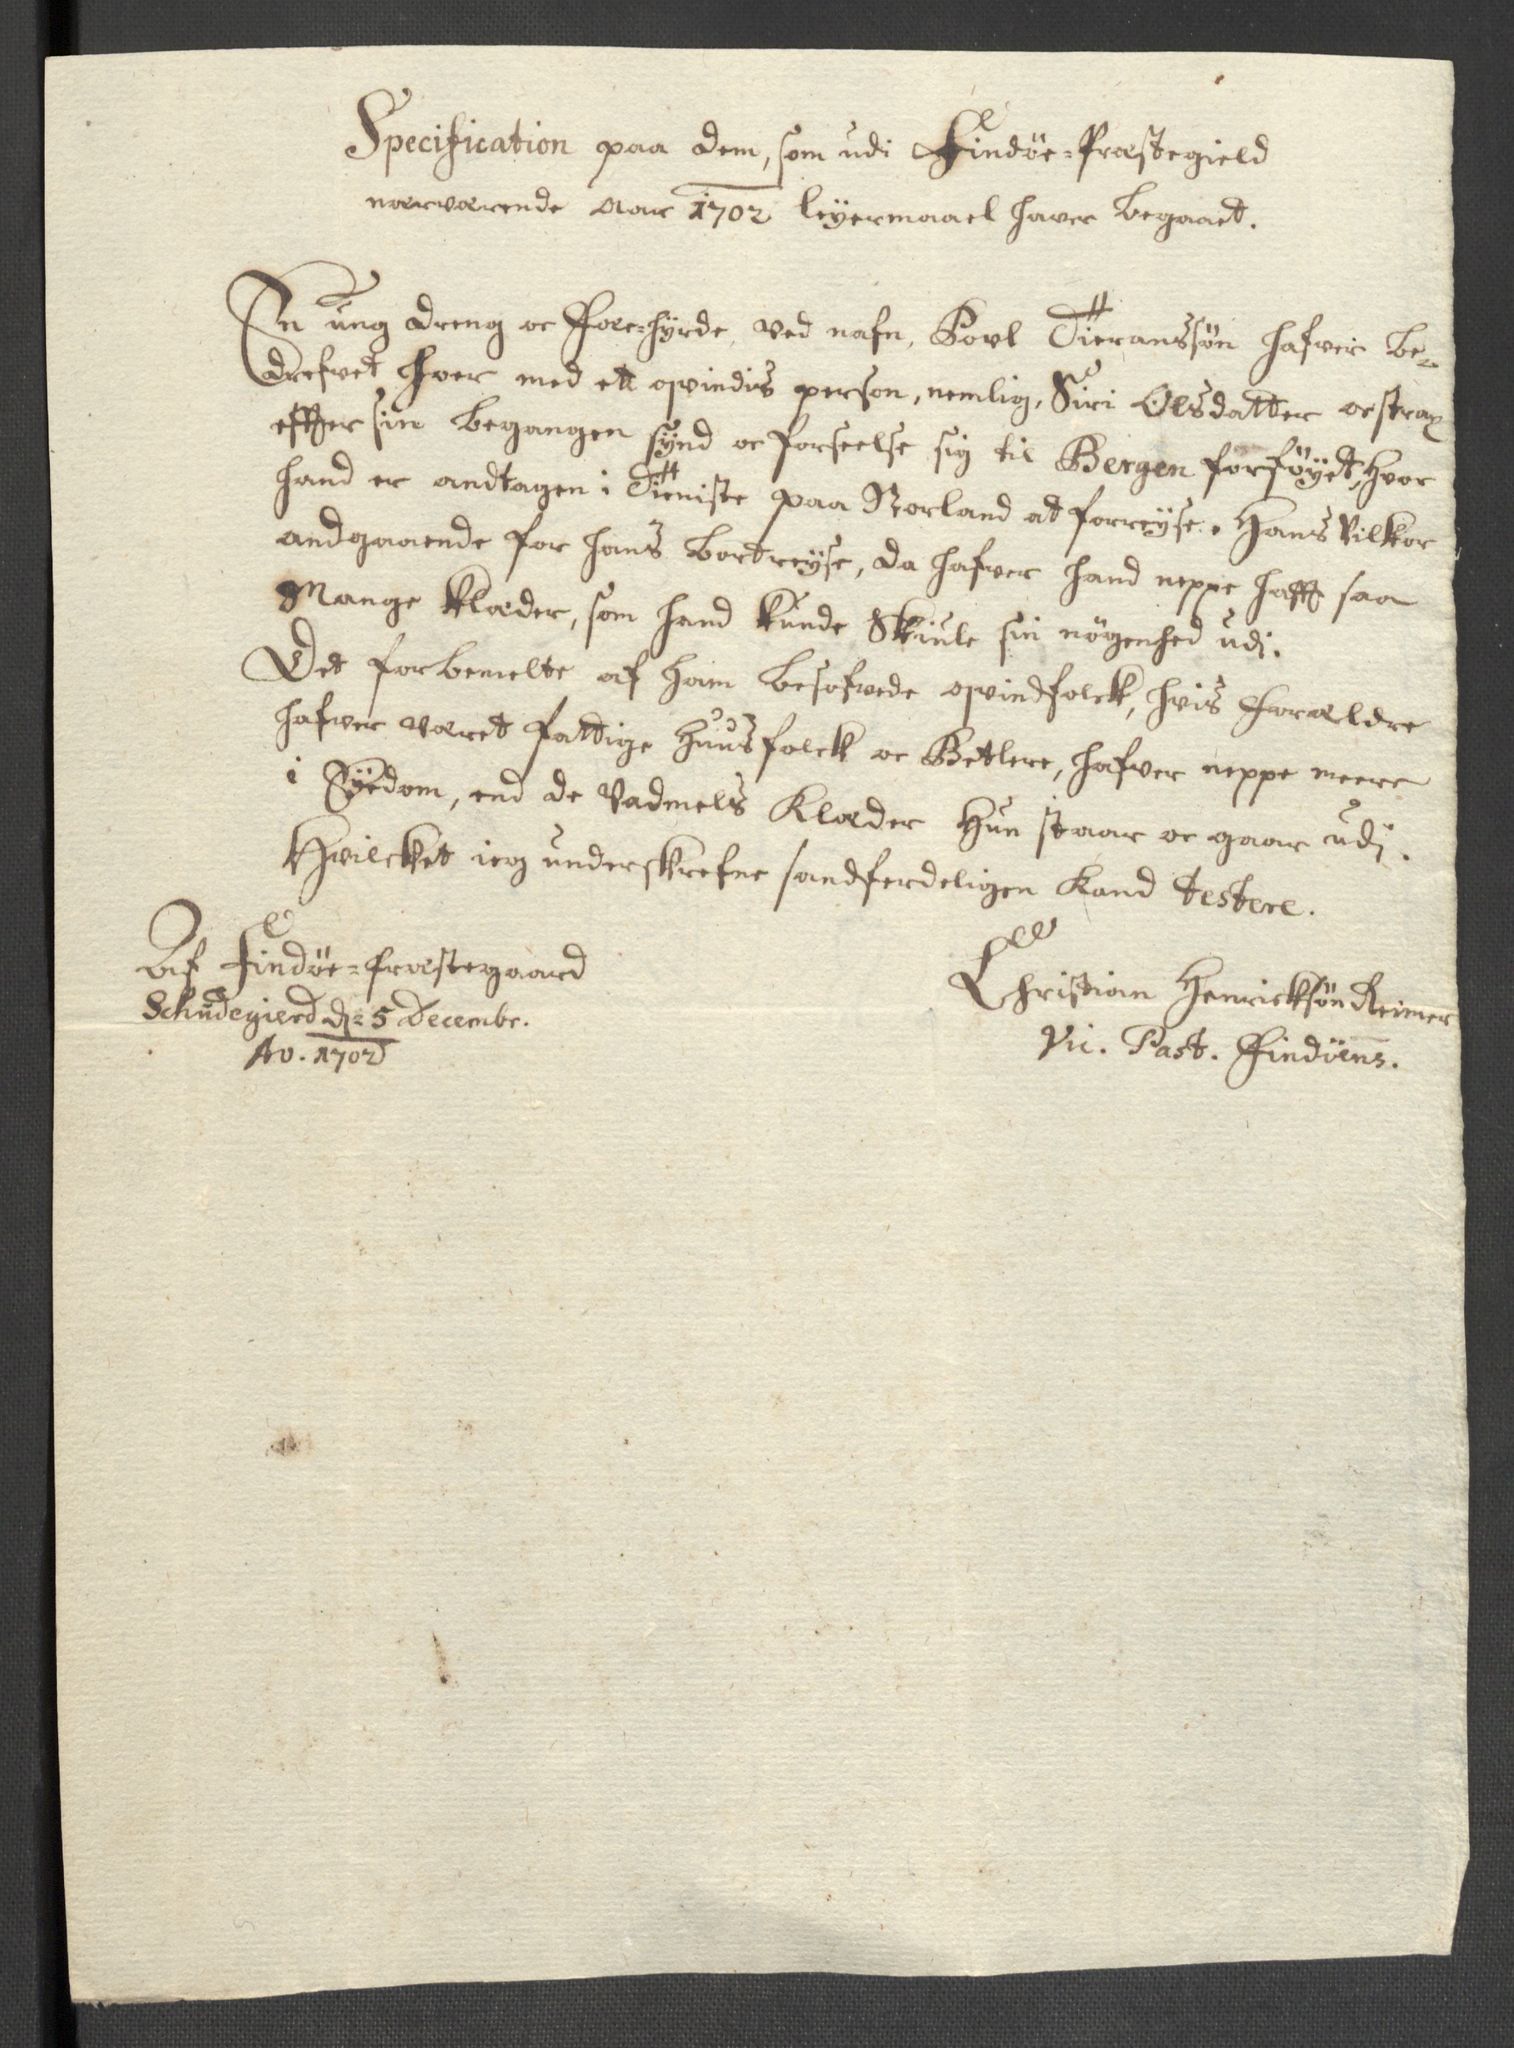 Specification paa dem, som udi Findøe-Præstegield
nærværende aar 1702 leyermaael haver begaaet.
En ung dreng oc Fæe-hyrde, ved nafn, Povl hafver be-
drefvet hoer med ett qvindis person, nemlig, Siri Olsdatter oc strax
effter sin begangen synd oc forseelse sig til Bergen forföyet, hvor
hand er andtagen i Tieniste paa Norland at forreyse. Hans Vilkor
andgaaende for hans bortreyse, da hafver hand neppe hafft saa
Mange Klæder, som hand kunde Skiule sin nögenhed udi.
Det forbemelte af ham besofvede qvindfolck, hvis Forældre
hafver været fattige Huusfolck oc Betlere, hafver neppe meere
i Eyedom, end de Vadmels Klæder Hun staar oc gaar udi.
Hvilcket ieg underskrefne sandferdeligen Kand testere.
Af Findöe-Præstegaard
Schudegierd d: 5 decembr.
Ao. 1702
Christian Henricksön Reimer
Vic. Past. Findöens.